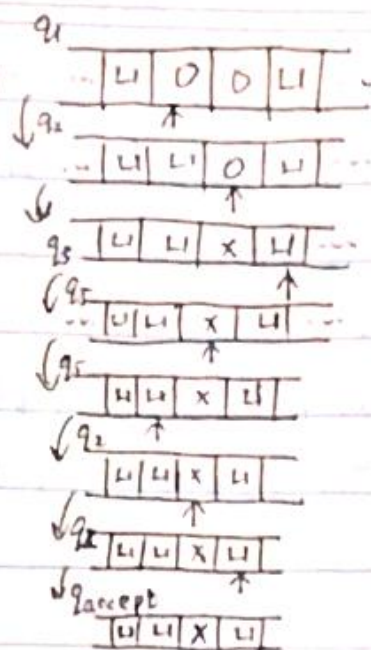 q1
... ⊔ 0 0 ⊔ ...
q2
... ⊔ ⊔ 0 ⊔ ...
q3
⊔ ⊔ x ⊔ ...
q5
... ⊔ ⊔ x ⊔ ...
q5
⊔ ⊔ x ⊔
q2
⊔ ⊔ x ⊔
q2
⊔ ⊔ x ⊔
qaccept
⊔ ⊔ x ⊔